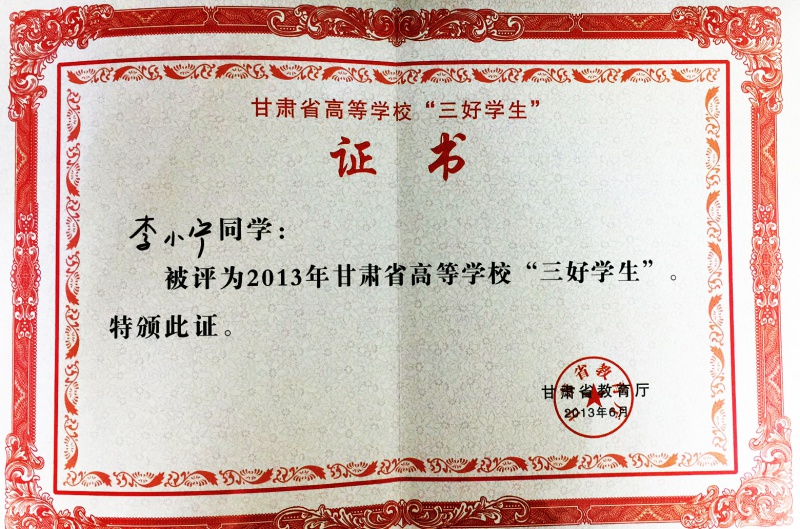 甘肃省高等学校“三好学生”
证书
李小宁同学：
被评为2013年甘肃省高等学校“三好学生”。
特颁此证。
甘肃省教育厅
2013年6月